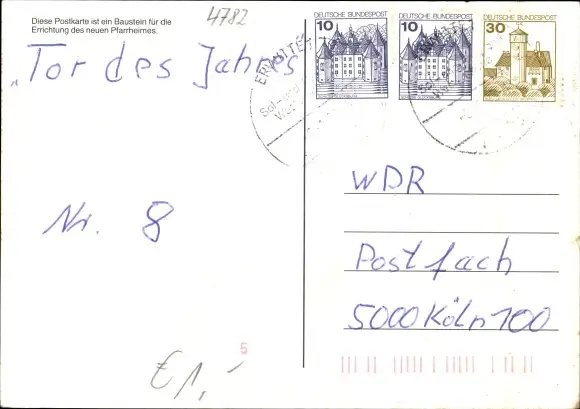 Diese Postkarte ist ein Baustein für die
Errichtung des neuen Pfarrheimes.
4782
„Tor des Jahres
Nr. 8
5
€ 1,-
DEUTSCHE BUNDESPOST
10
DEUTSCHE BUNDESPOST
10
DEUTSCHE BUNDESPOST
30
ERWITTE
Sol-
WDR
Postfach
5000 Köln 100